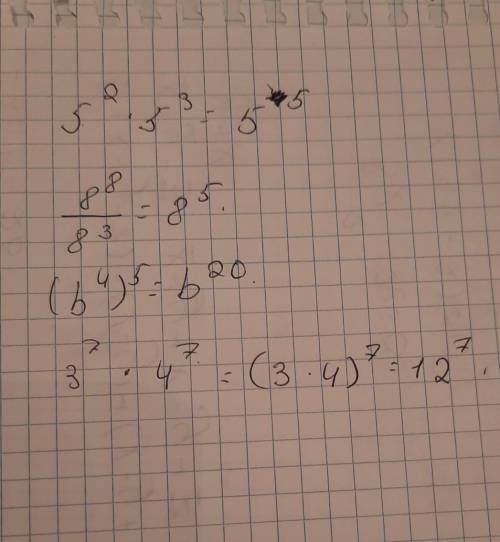 5² · 5³ = 5⁵
8⁸/8³ = 8⁵.
(b⁴)⁵ = b²⁰.
3⁷ · 4⁷ = (3 · 4)⁷ = 12⁷.